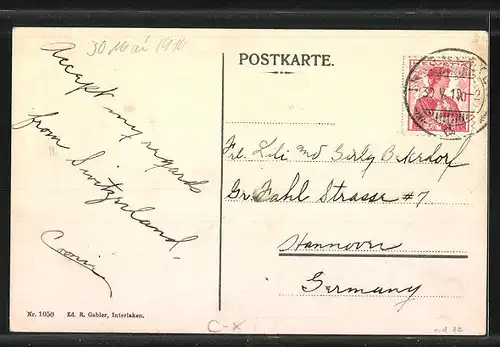 30 Mai 1910
POSTKARTE.
Accept my regards
from Switzerland.
Frl. Lili und
Gr. Pfahl Strasse #7
Hannover
Germany
30 V 10
Nr. 1050 Ed. R. Gabler, Interlaken.
C-X